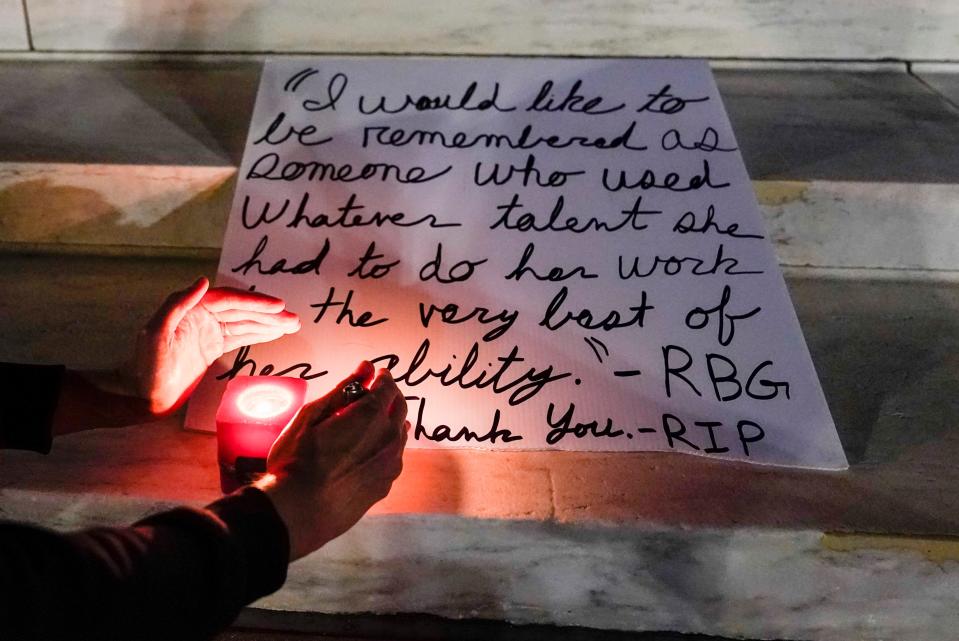 "I would like to
be remembered as
someone who used
Whatever talent she
had to do her work
the very best of
her ability." - RBG
Thank You. - RIP